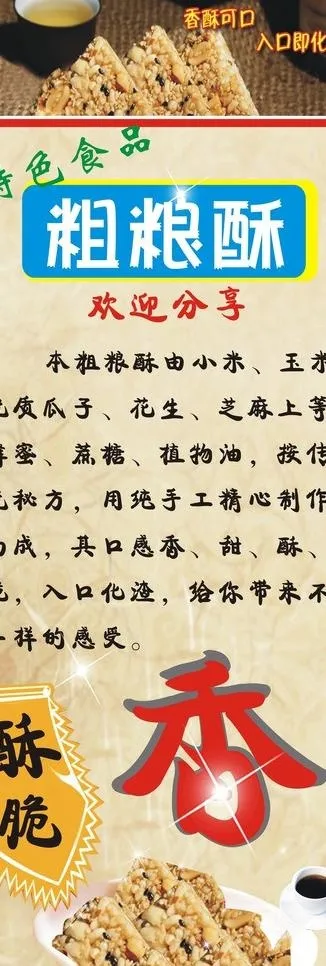 香酥可口
入口即化
特色食品
粗粮酥
欢迎分享
本粗粮酥由小米、玉米
优质瓜子、花生、芝麻上等
蜂蜜、蔗糖、植物油，按传
统秘方，用纯手工精心制作
而成，具口感香、甜、酥、
脆，入口化渣，给你带来不
一样的感受。
香
酥
脆